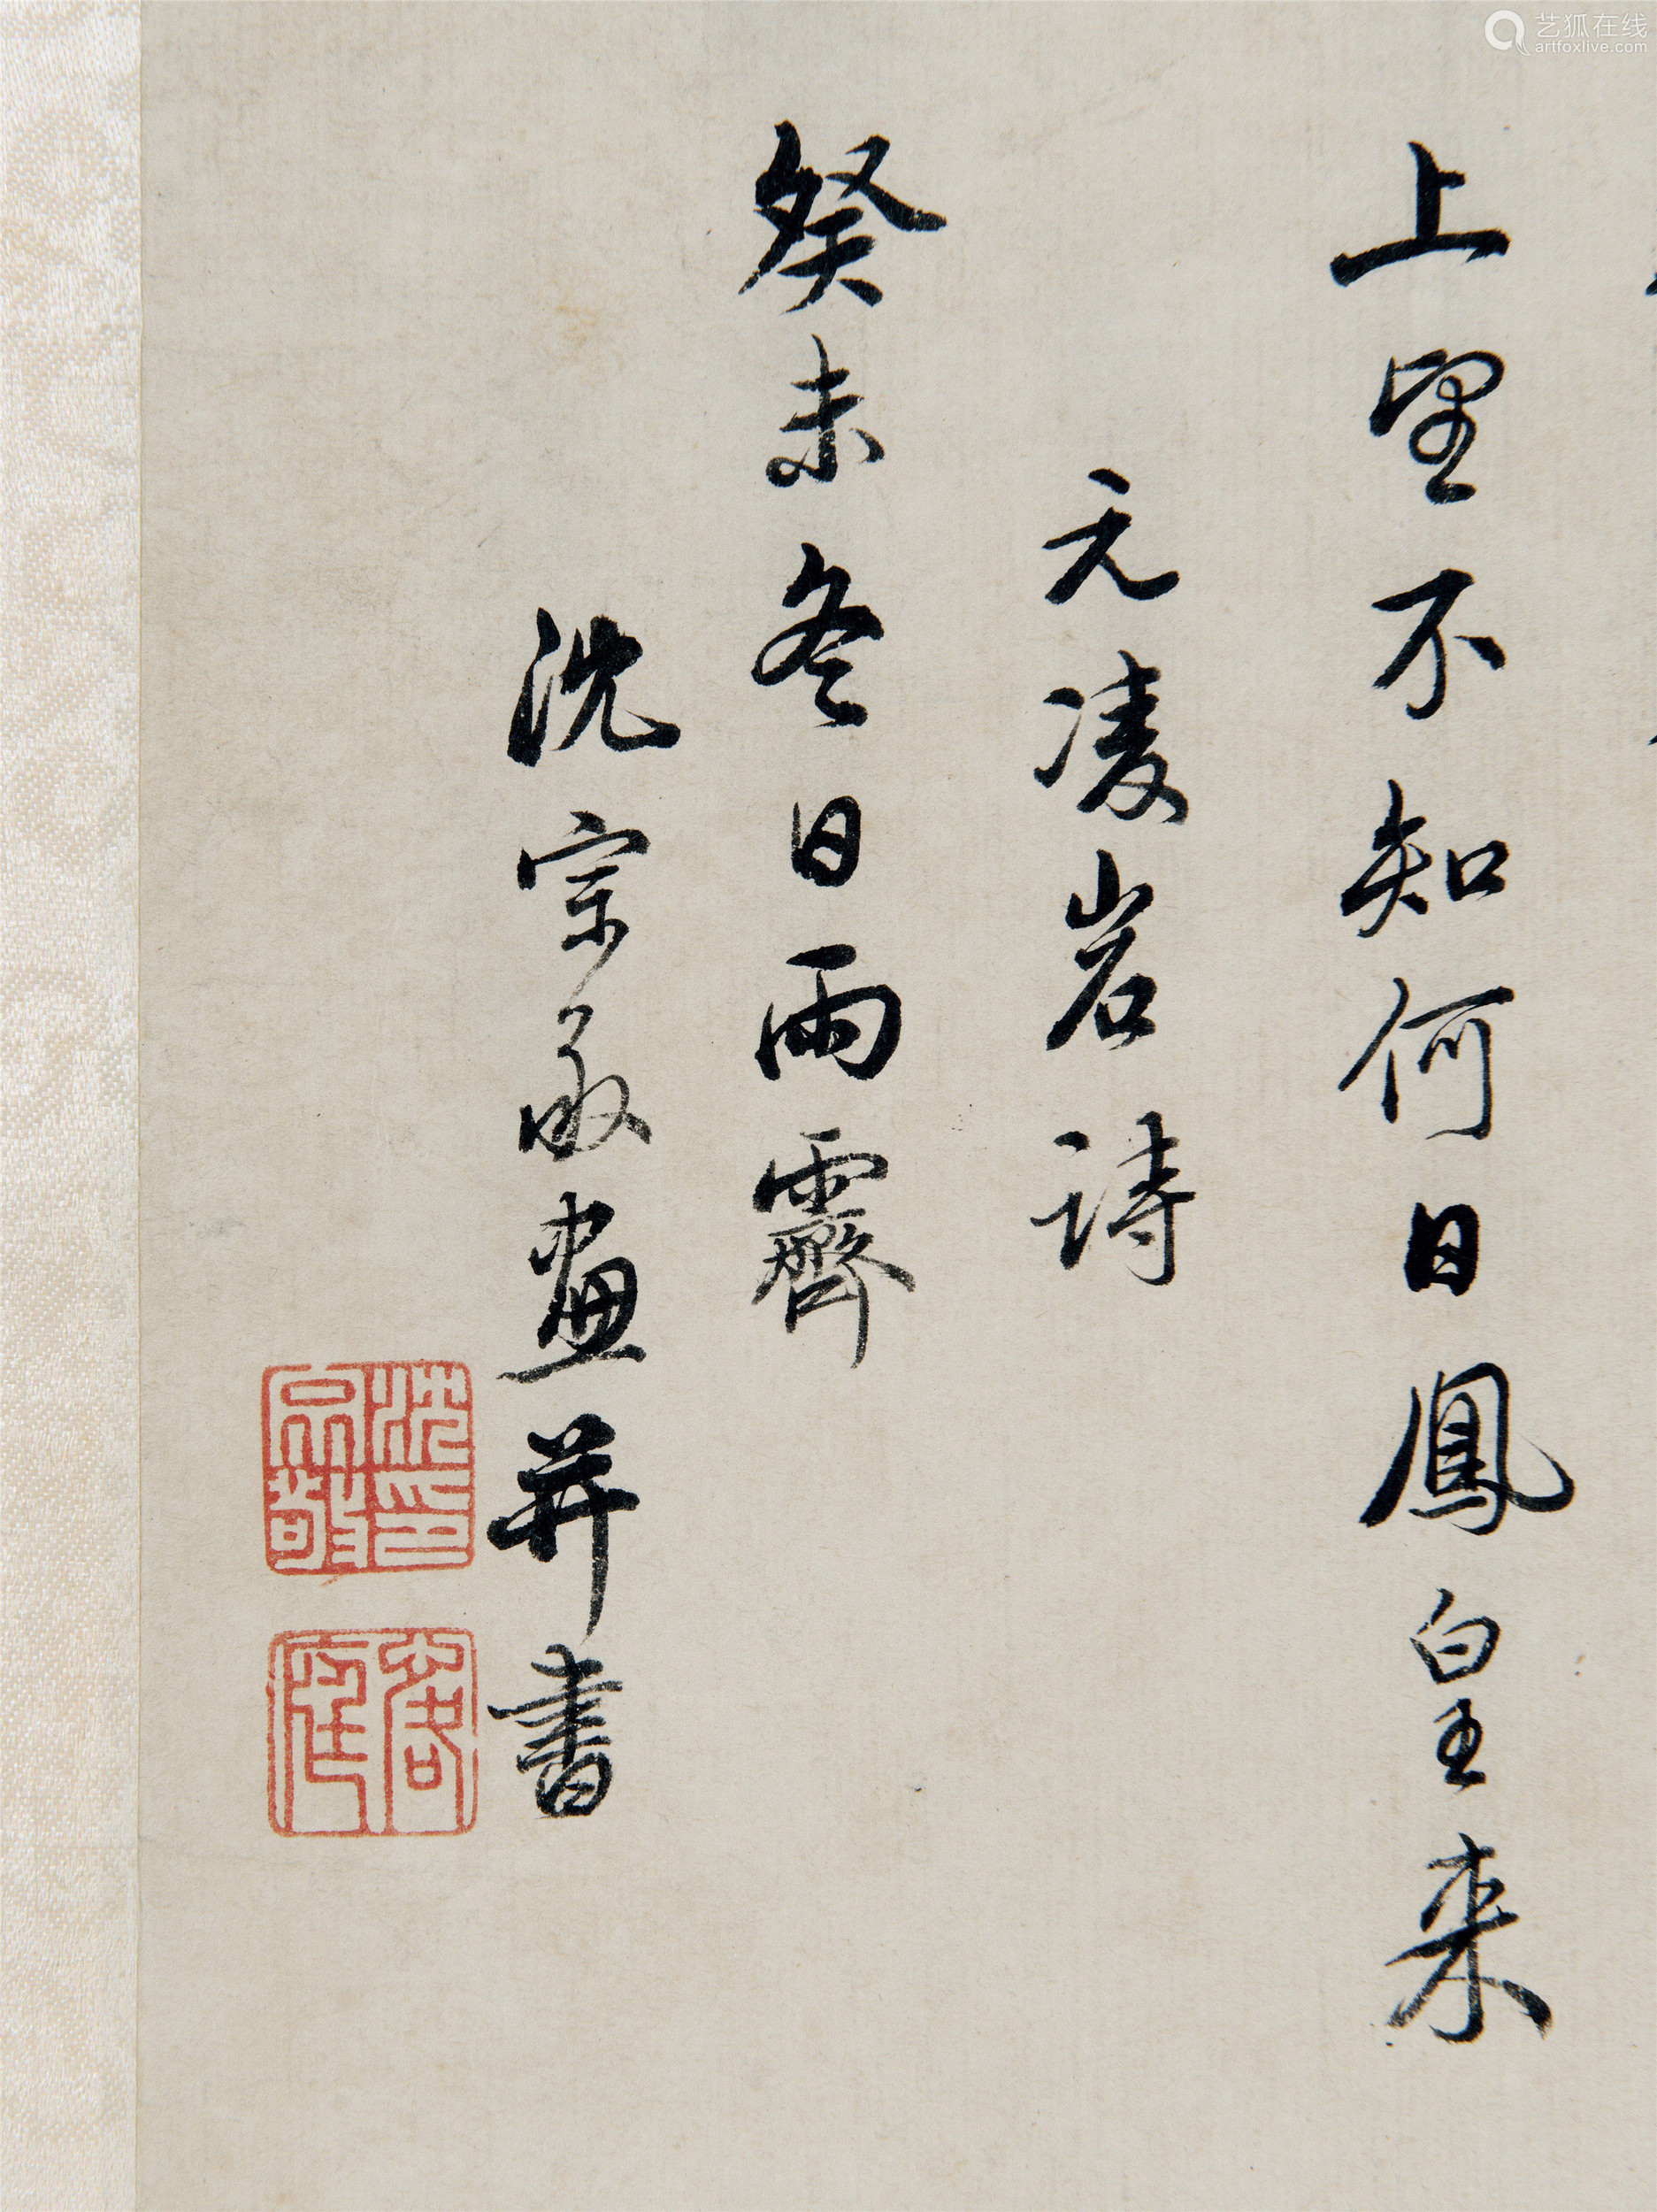 上望不知何日鳳皇来
元凌岩詩
癸未冬日雨霽
沈宗敬畫并書
沈印宗敬
艺狐在线
artfoxlive.com